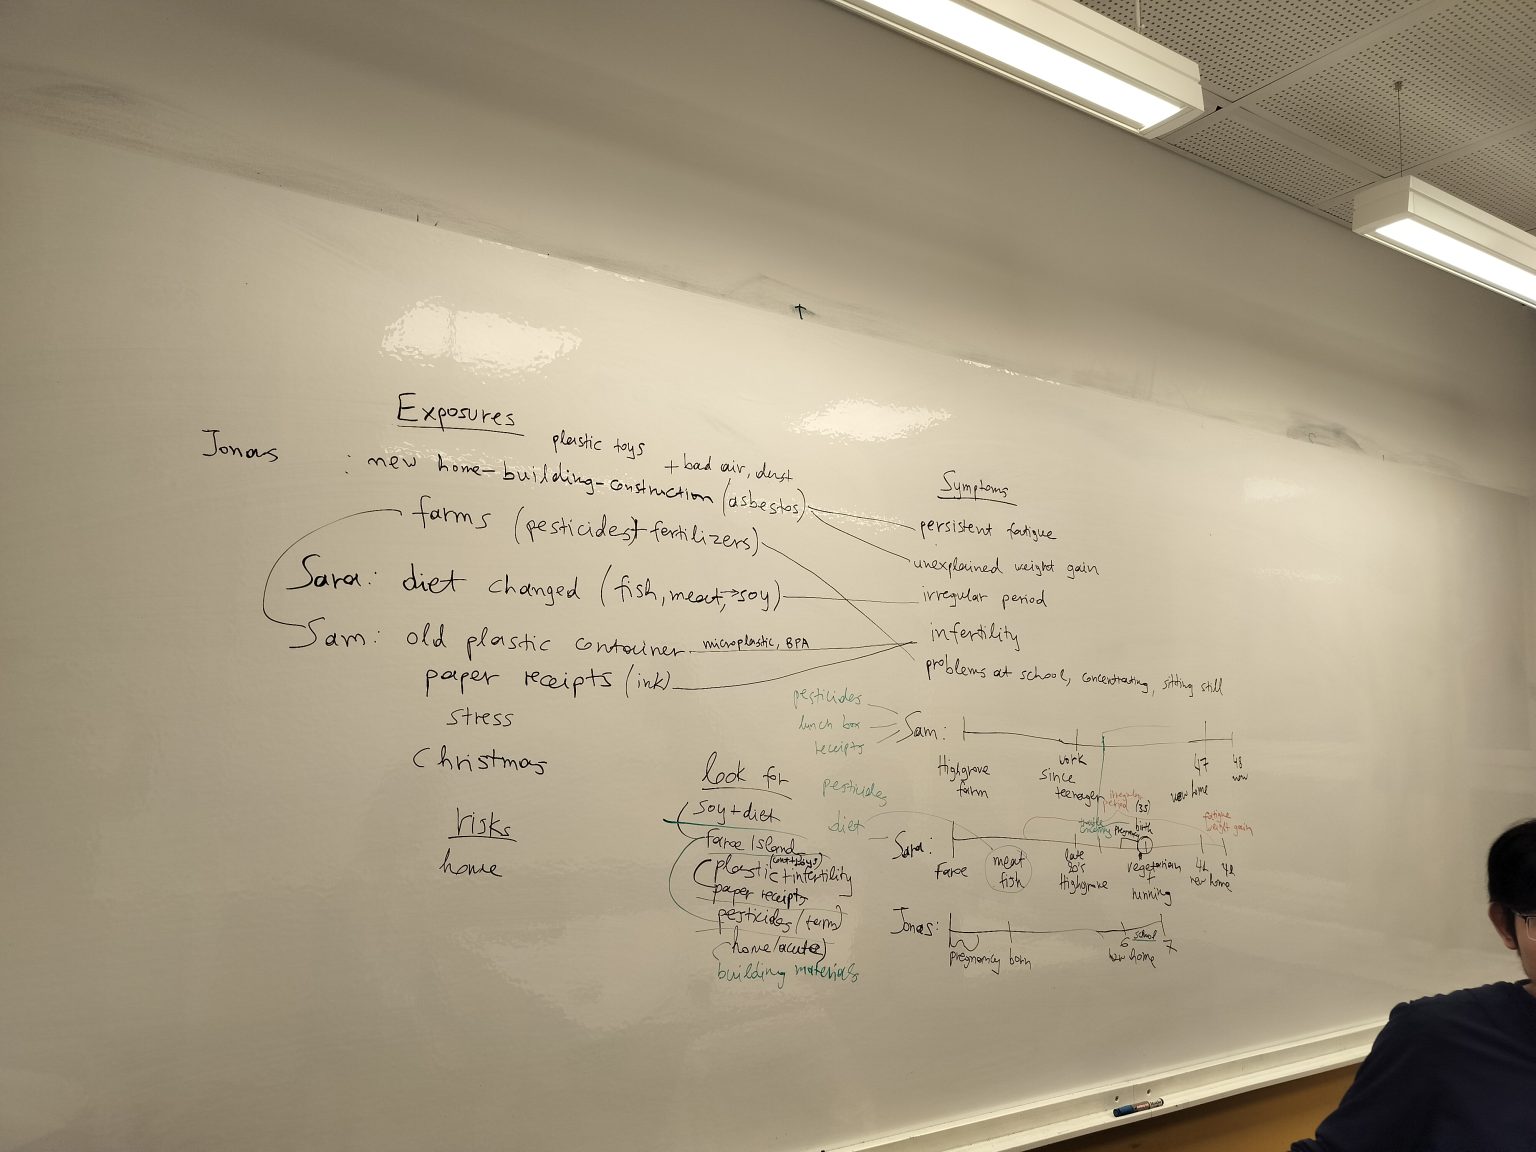 Exposures
plastic toys
Jonas : new home-building-construction (asbestos)
+ bad air, dust
farms (pesticides + fertilizers)
Sara: diet changed (fish, meat, → soy)
Sam: old plastic container microplastic, BPA
paper receipts (ink)
stress
Christmas
risks
home
Symptoms
persistent fatigue
unexplained weight gain
irregular period
infertility
problems at school, concentrating, sitting still
look for
soy + diet
faroe island
plastic + infertility
paper receipts
pesticides (term)
home (acute)
building materials
pesticides
lunch box
receipts
Sam:
Highgrove farm
work since teenager
47
new home
48
now
pesticides
diet
Sara:
Faroe
meat
fish
late 20's
Highgrove
irregular period
(35)
pregnancy
birth
vegetarian
+
running
fatigue
weight gain
new home
Jonas:
pregnancy
born
6
school
7
new home